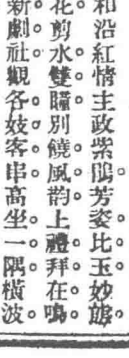 和沿紅情主政紫鵑芳姿比玉妙齡。
花。剪水雙瞳。別饒風韵。上禮拜在鳴。
新劇社觀各妓客串。高坐一隅。橫波。